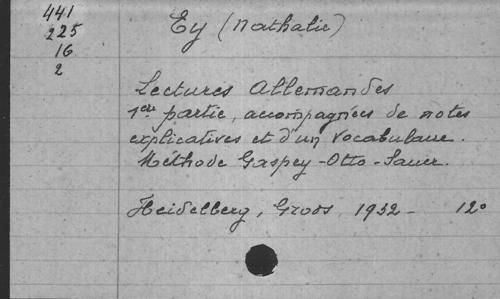 441
225
16
2
Ey (Nathalie)
Lectures Allemandes
1ère partie, accompagnées de notes
explicatives et d'un vocabulaire.
Méthode Gaspey-Otto-Sauer.
Heidelberg, Groos, 1932 - 12°